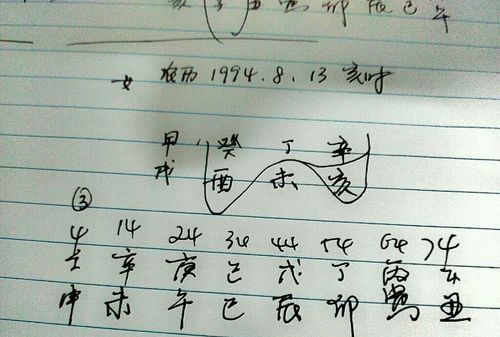 卯 辰 巳 午
女 农历 1994.8.13 亥时
甲 癸 丁 辛
戌 酉 未 亥
③
4 14 24 34 44 54 64 74
壬 辛 庚 己 戊 丁 丙 乙
申 未 午 巳 辰 卯 寅 丑